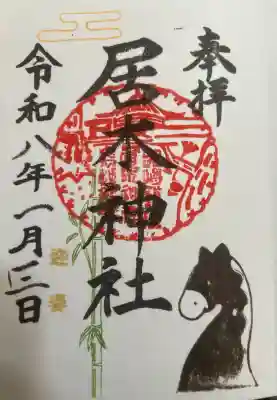 奉拝
居木神社
令和八年一月三日
迎春